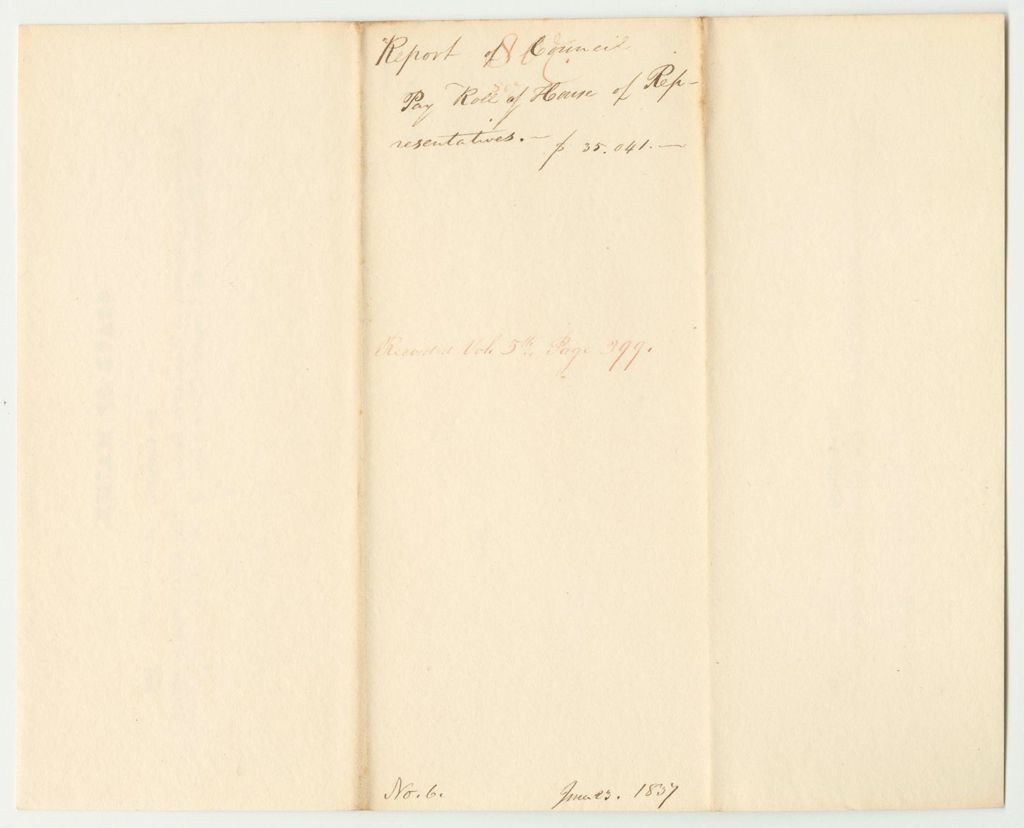 Report of Council
Pay Roll of House of Rep-
resentatives. — $ 35.041. —
Recorded Vol. 5th. Page 399.
No. 6.
June 23. 1837